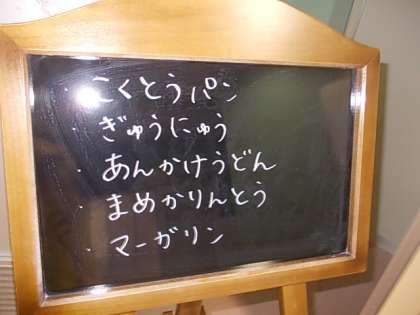 ・こくとうパン
・ぎゅうにゅう
・あんかけうどん
・まめかりんとう
・マーガリン